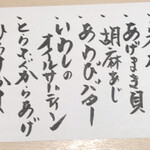 あげまき貝
胡麻あじ
あわびバター
いわしの
オイルサーディン
とらふぐからあげ